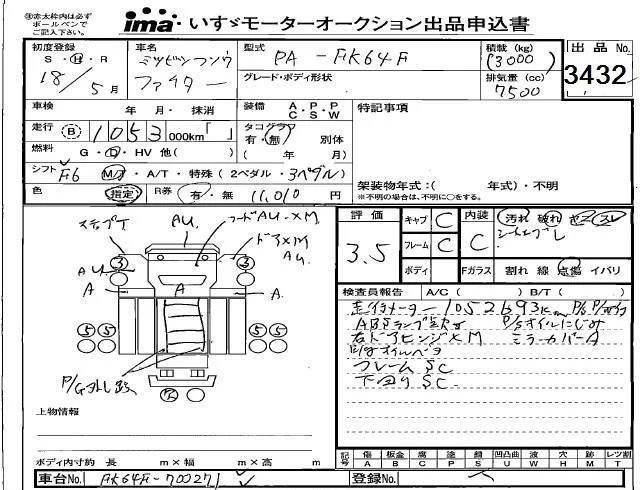 ㊟赤太枠内は必ず
ボールペンで
ご記入下さい。
ima いすゞモーターオークション出品申込書
初度登録
S・H・R
18/5月
車名
ミツビシフソウ
ファイター
型式
PA-FK64F
グレード・ボディ形状
積載(kg)
(3000)
排気量(cc)
7500
出品No.
3432
車検
年 月・抹消
装備 A・P・P
C S W
特記事項
走行 B 1053 000km「 」
タコグラフ
有・無 別体
( 年 月)
燃料
G・D・HV 他( )
シフト F6 M/T・A/T・特殊(2ペダル・3ペダル)
色 指定 R券 有・無 11,010円
架装物年式:( 年式)・不明
※不明の場合は、不明に○をする。
評価
3.5
キャブ C
フレーム C
ボディ
内装
C
汚れ 破れ コゲ スレ
Fガラス 割れ 線 点傷 イバリ
検査員報告 A/C( ) B/T( )
走行メーター1052693km
ABSランプ点灯 P/Sオイルにじみ
右ドアヒンジ×M ミラーカバーA
フレームSC
下回りSC
ステップ
AU
AU.
フードAU-XM
ドアXM
AU.
A
A
3
3
5
5
5
5
上物情報
ボディ内寸約 長 m×幅 m×高 m
記号
傷 板金 腐 塗 錆 凹凸曲 波 穴 跡 レツ割
A B C P S U W H M T
車台No. FK64F-700271
登録No.